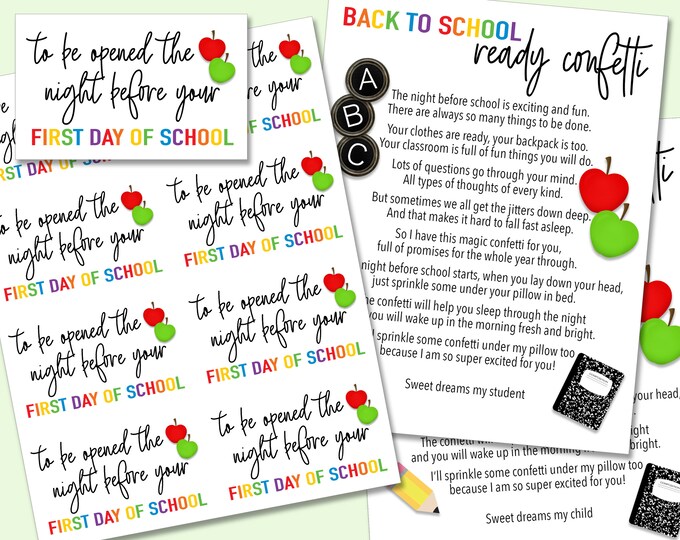 to be opened the
night before your
FIRST DAY OF SCHOOL
FIRST DAY OF SCHOOL
FIRST DAY OF SCHOOL
to be opened the
night before your
FIRST DAY OF SCHOOL
to be opened the
night before your
FIRST DAY OF SCHOOL
to be opened the
night before your
FIRST DAY OF SCHOOL
to be opened the
night before your
FIRST DAY OF SCHOOL
to be opened the
night before your
FIRST DAY OF SCHOOL
to be opened the
night before your
FIRST DAY OF SCHOOL
BACK TO SCHOOL
ready confetti
A
B
C
The night before school is exciting and fun.
There are always so many things to be done.
Your clothes are ready, your backpack is too.
Your classroom is full of fun things you will do.
Lots of questions go through your mind.
All types of thoughts of every kind.
But sometimes we all get the jitters down deep,
And that makes it hard to fall fast asleep.
So I have this magic confetti for you,
full of promises for the whole year through.
night before school starts, when you lay down your head,
just sprinkle some under your pillow in bed.
he confetti will help you sleep through the night
you will wake up in the morning fresh and bright.
sprinkle some confetti under my pillow too
because I am so super excited for you!
Sweet dreams my student
your head,
The confetti will
night
and you will wake up in the morning
bright.
I'll sprinkle some confetti under my pillow too
because I am so super excited for you!
Sweet dreams my child